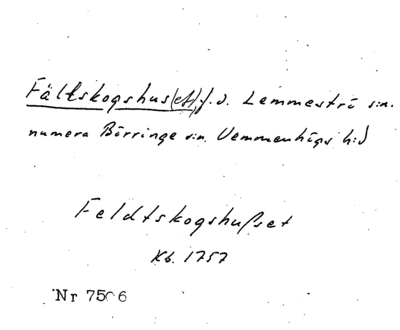 Fältskogshus(et), f. d. Lemmeströ s:n.
numera Börringe s:n. Vemmenhögs h:d
Feldtskogshuſset
Kb. 1757
Nr 7506